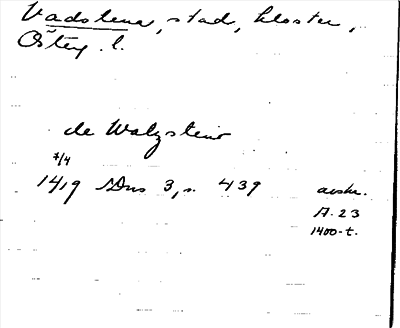 Vadstena, stad, kloster,
Österg. l.
de Watzsteno
7/4
1419 SDns 3, s. 439 avskr.
A 23
1400-t.